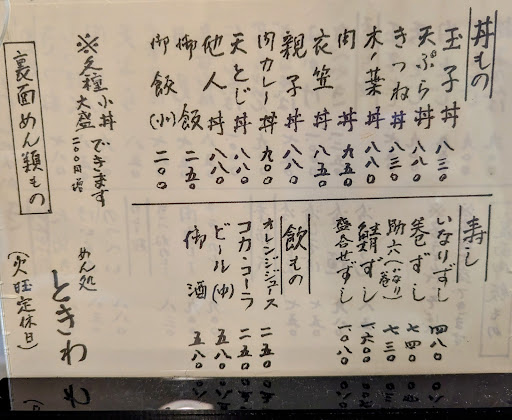 丼もの
玉子丼 八三〇
天ぷら丼 八八〇
きつね丼 八三〇
木ノ葉丼 八八〇
肉丼 九五〇
衣笠丼 八五〇
親子丼 八八〇
肉カレー丼 九〇〇
天とじ丼 八八〇
他人丼 八八〇
御飯 二五〇
御飯(小) 二〇〇
※各種小丼できます
大盛二〇〇円増
裏面めん類もの
寿し
いなりずし 四八〇
巻ずし 七四〇
助六(いなり巻) 七三〇
鯖ずし 一六〇〇
盛合せずし 一〇八〇
飲もの
オレンジジュース 二五〇
コカ・コーラ 二五〇
ビール(中) 五八〇
御酒 五八〇
めん処
ときわ
(火曜定休日)